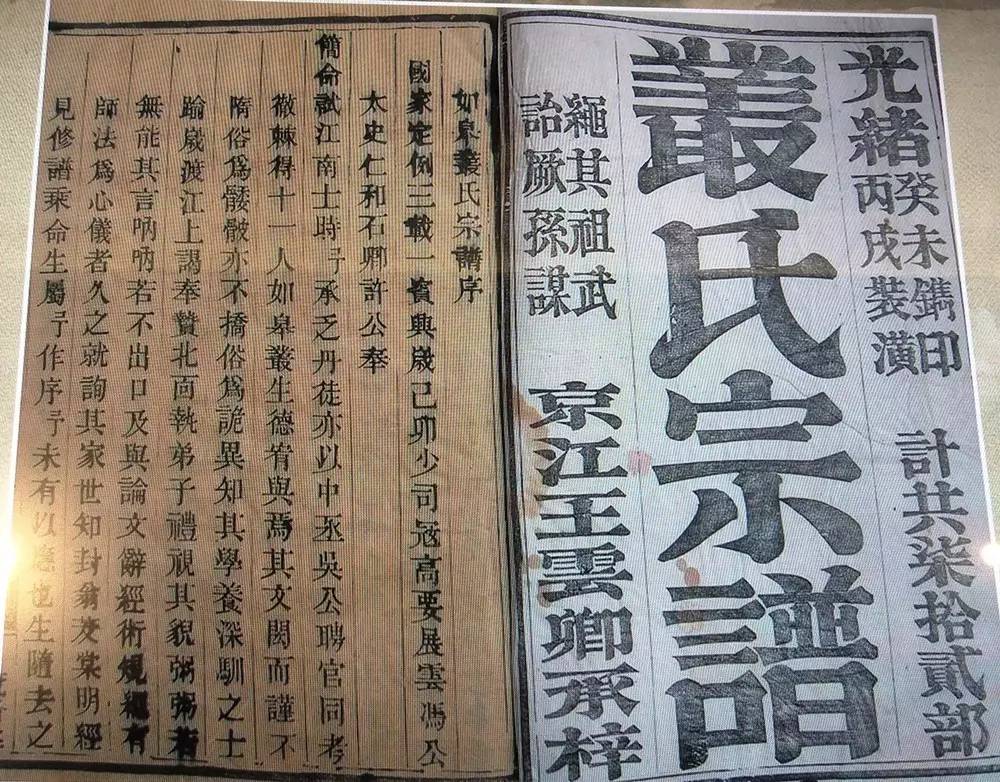 光緒
癸未鐫印
丙戌裝潢
計共柒拾貳部
叢氏宗譜
繩其祖武
詒厥孫謀
京江王雲卿承梓
如皋叢氏宗譜序
國家定例三載一賓興歲己卯少司寇高要展雲馮公
太史仁和石卿許公奉
簡命試江南士時予承乏丹徒亦以中丞吳公聘官同考
徹棘得十一人如皋叢生德宥與焉其文閎而謹不
隋俗爲骫骳亦不撟俗爲詭異知其學養深馴之士
踰歲渡江上謁奉贄北面執弟子禮視其貌粥粥若
無能其言吶吶若不出口及與論文辭經術規繩有
師法爲心儀者久之就詢其家世知封翁棠明經
見修譜乘命生屬予作序予未有以應也生隨去之